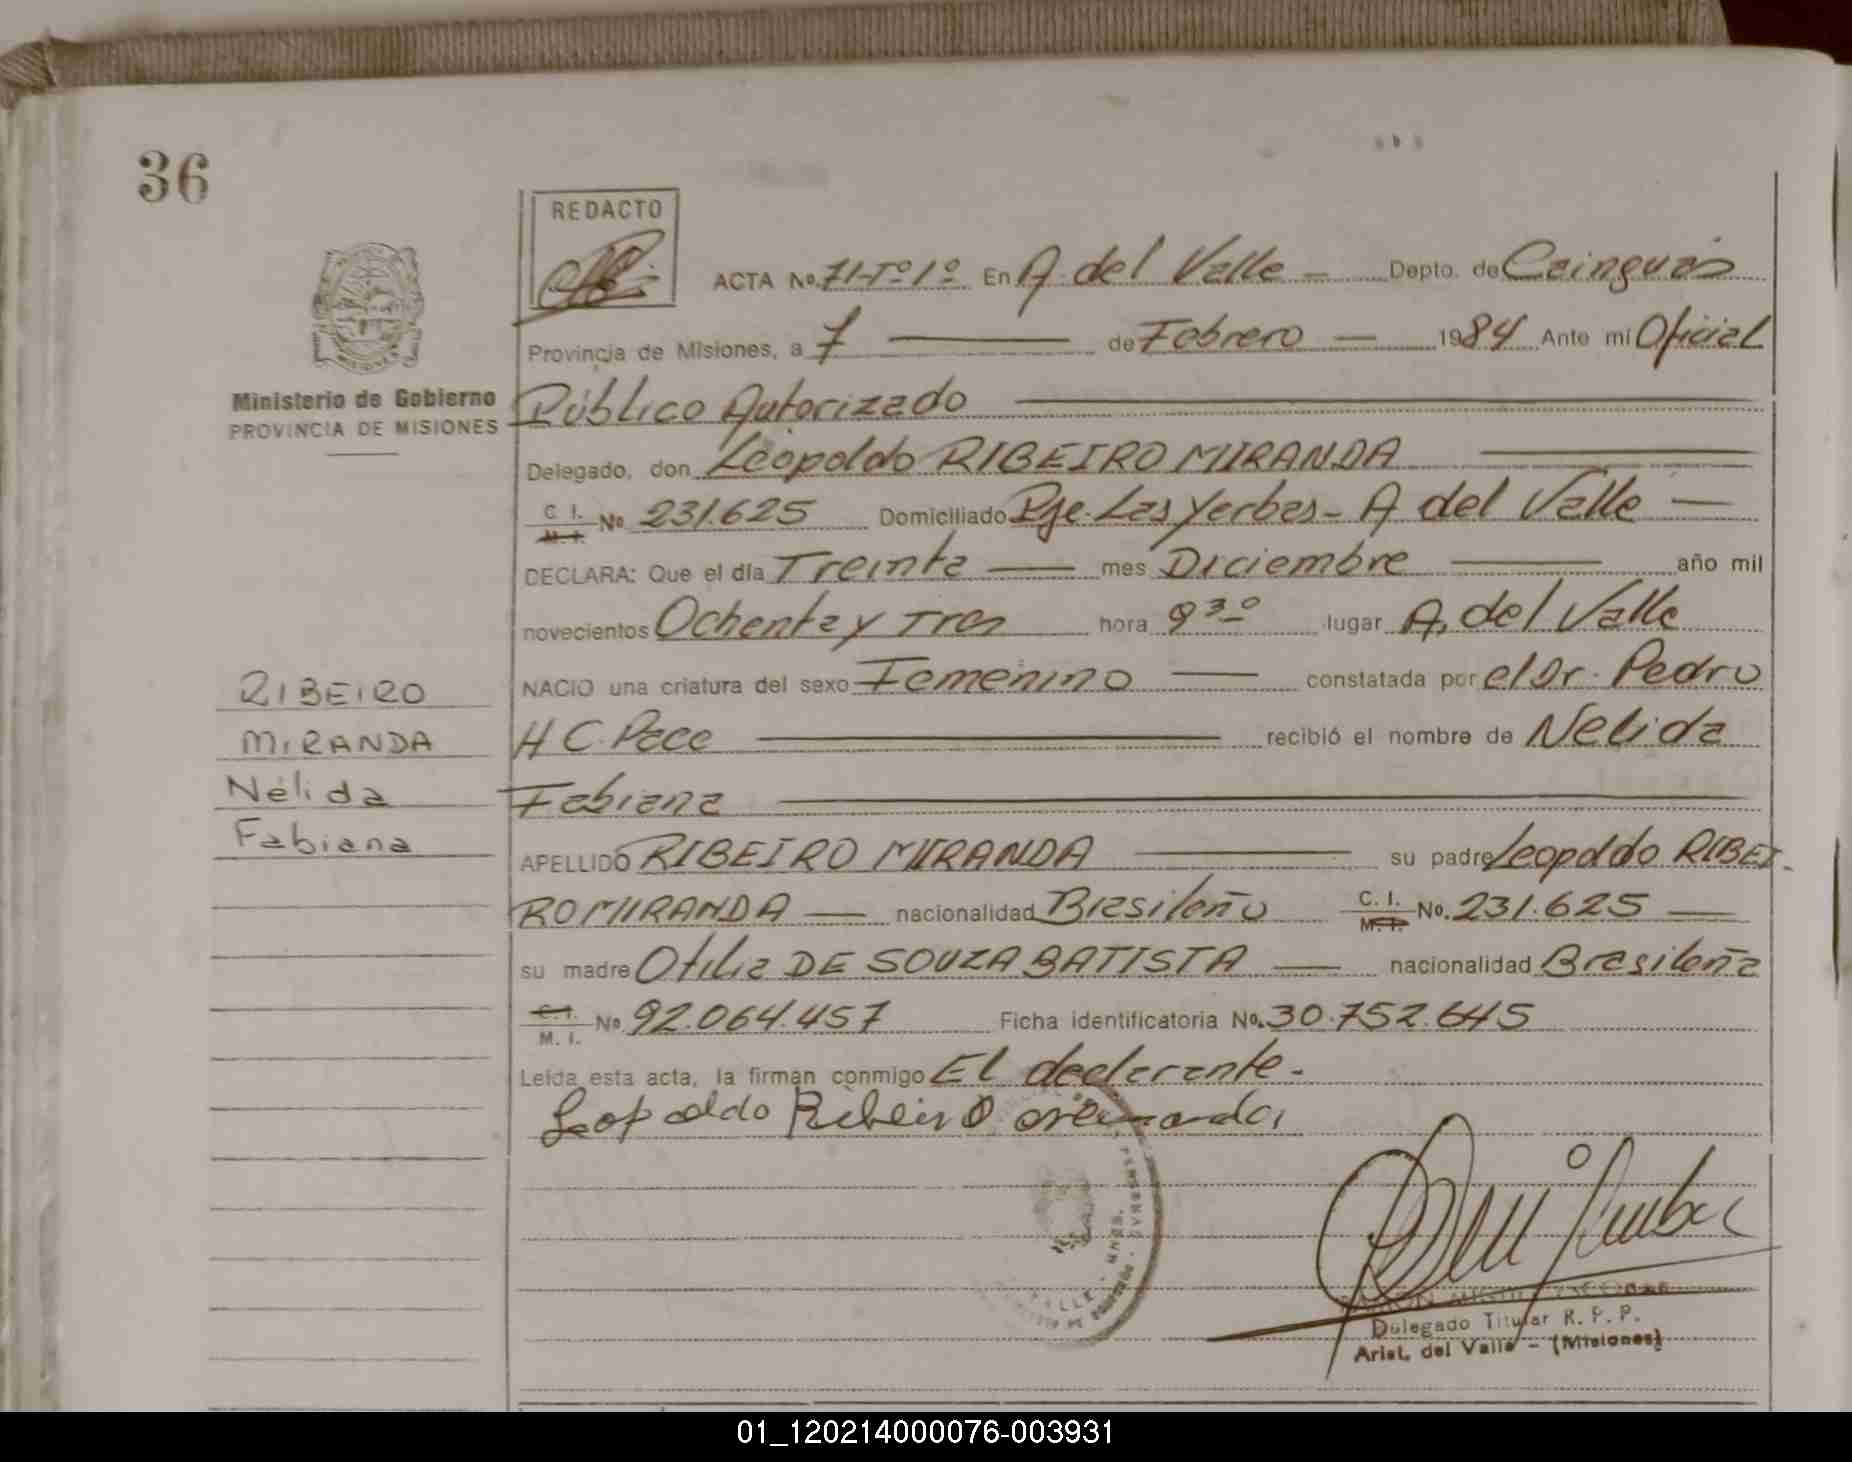 36
REDACTO
ACTA No. 71-Tº1º En A. del Valle — Depto. de Cainguás
Provincia de Misiones, a 7 — de Febrero — 1984 Ante mí Oficial
Ministerio de Gobierno
PROVINCIA DE MISIONES
Público Autorizado
Delegado, don Leopoldo RIBEIRO MIRANDA
C. I. M. I. No 231.625 Domiciliado Pje. Las Yerbas - A del Valle —
DECLARA: Que el día Treinta — mes Diciembre — año mil
novecientos Ochenta y Tres hora 9³⁰ lugar A. del Valle
NACIO una criatura del sexo Femenino — constatada por el Dr. Pedro
H C. Pace — recibió el nombre de Nelida
Fabiana
RIBEIRO
MIRANDA
Nélida
Fabiana
APELLIDO RIBEIRO MIRANDA — su padre Leopoldo RIBEI-
RO MIRANDA — nacionalidad Brasileño C. I. M. I. No. 231.625 —
su madre Otilia DE SOUZA BATISTA — nacionalidad Brasileña
C. I. M. I. No 92.064.457 Ficha identificatoria No. 30.752.645
Leída esta acta, la firman conmigo El declarante.
Leopoldo Ribeiro Miranda
Delegado Titular R. P. P.
Arist. del Valle - (Misiones)
01_120214000076-003931